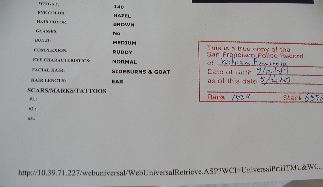 WEIGHT: 140
EYE COLOR HAZEL
HAIR COLOR BROWN
GLASSES: No
BUILD: MEDIUM
COMPLEXION: RUDDY
EYE CHARACTERISTICS: NORMAL
FACIAL HAIR: SIDEBURNS & GOAT
HAIR LENGTH: EAR
SCARS/MARKS/TATTOOS
#1:
#2:
#3:
This is a true copy of the
San Francisco Police Record
of
Date of Birth
as of this date
Rank Star#
http://10.39.71.227/webuniversal/WebUniversalRetrieve.ASP?WCI=UniversalPrinTML&WC